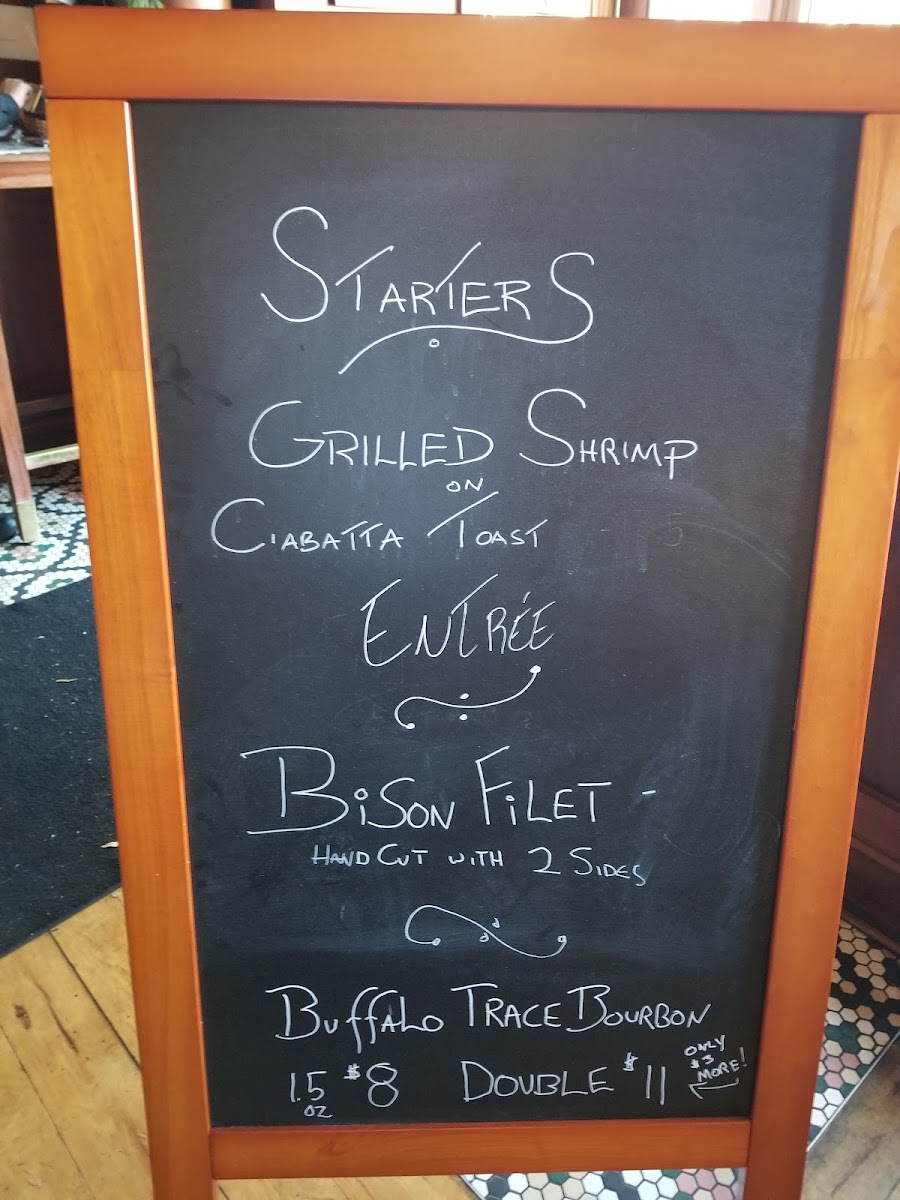 STARTERS
GRILLED SHRIMP
ON
CIABATTA TOAST
ENTRÉE
BISON FILET -
HAND CUT WITH 2 SIDES
BUFFALO TRACE BOURBON
1.5 OZ $8 DOUBLE $11 ONLY $3 MORE!